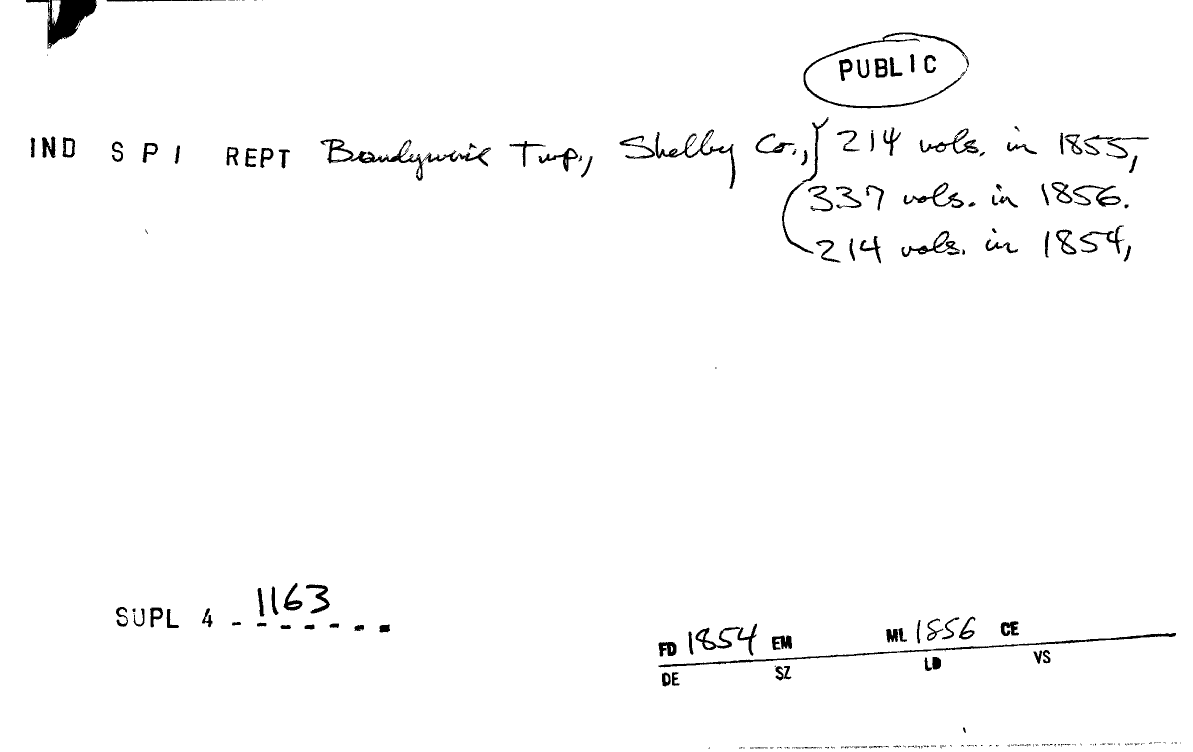 PUBLIC
IND S P I REPT Brandywine Twp., Shelby Co., 214 vols. in 1855,
337 vols. in 1856.
214 vols. in 1854,
SUPL 4 - 1163
FD 1854 EM ML 1856 CE
DE SZ LD VS